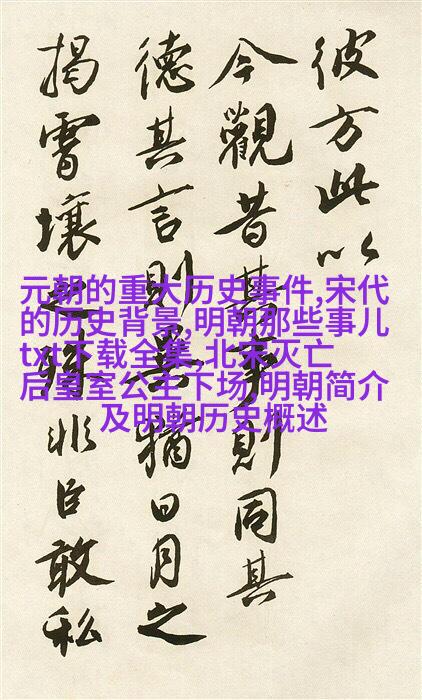 彼方此以
今觀昔其事則同其
德其言則異猶日月之
揭霄壤之殊非臣敢私
元朝的重大历史事件,宋代
的历史背景,明朝那些事儿
txt下载全集,北宋灭亡
后皇室公主下场,明朝简介
及明朝历史概述